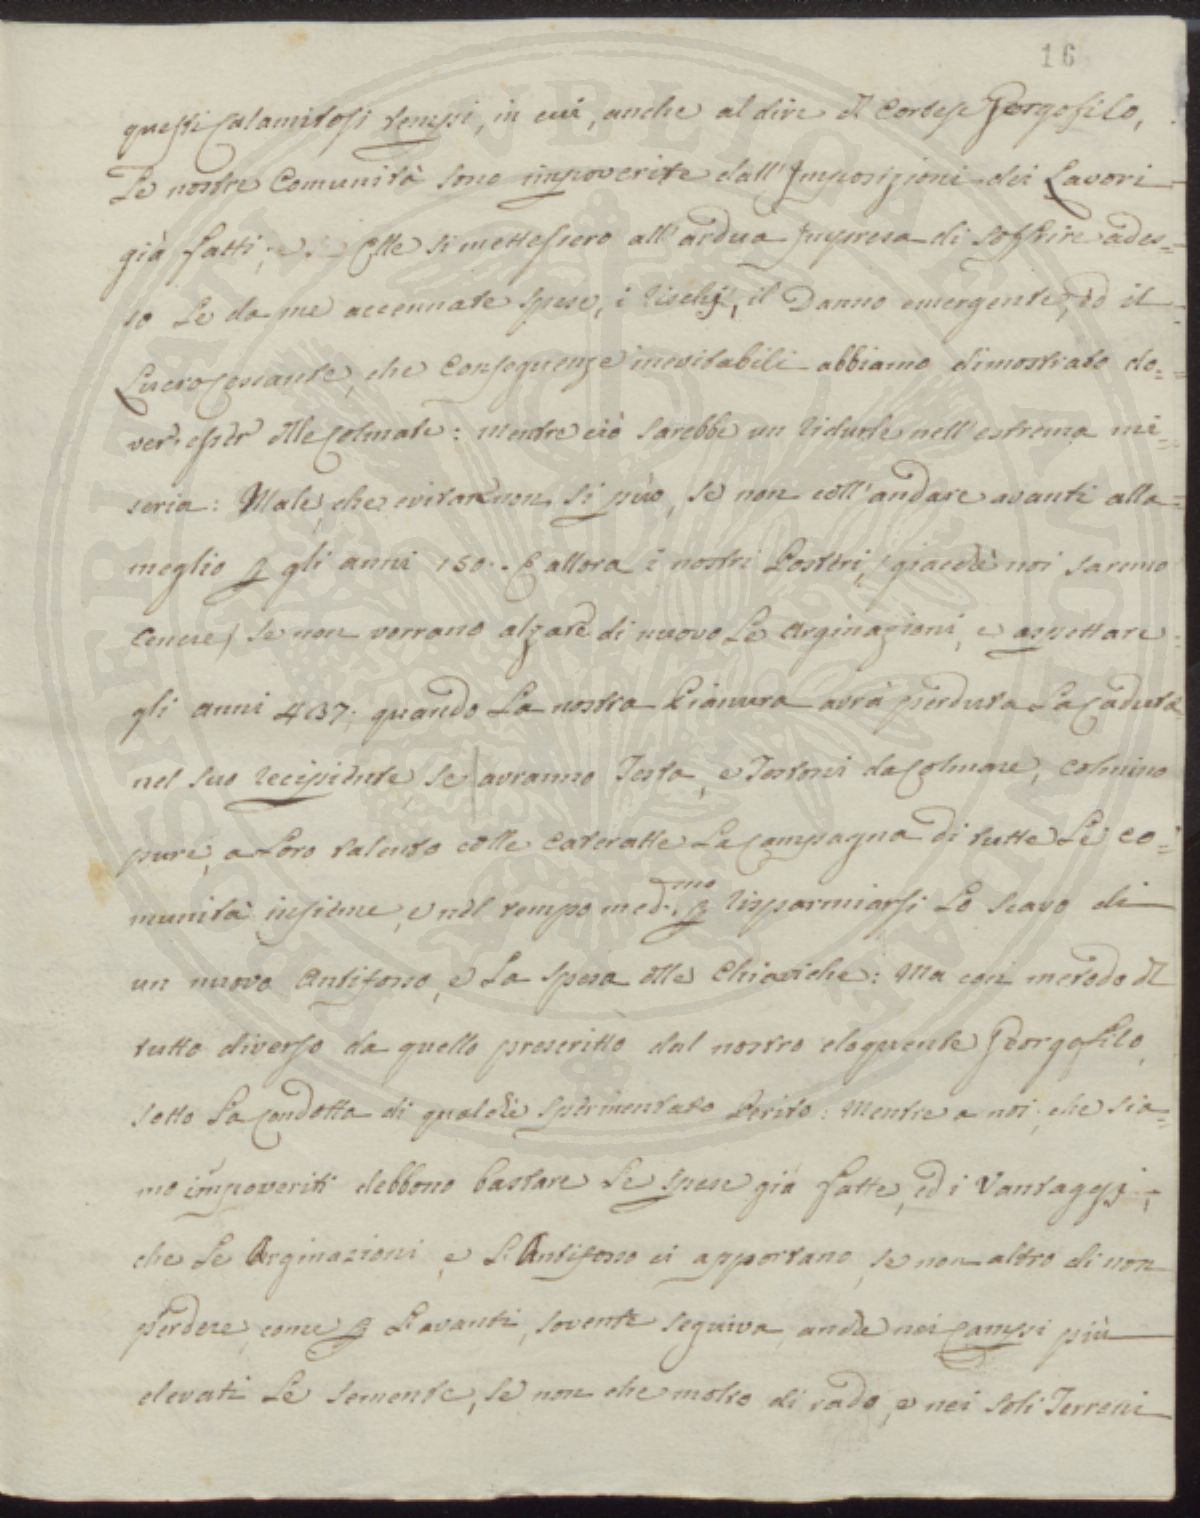 16
questi calamitosi tempi, in cui, anche al dire dl cortese Georgofilo,
Le nostre Comunità sono impoverite dall'Imposizioni dei Lavori
già fatti; e Elle si mettessero all'ardua Impresa di soffrire ades=
so Le da me accennate spese, i rischj, il Danno emergente, ed il
Lucro Cessante, che Conseguenze inevitabili abbiamo dimostrato do=
ver essèr dlle Colmate: mentre ciò sarebbe un ridurle nell'estrema mi=
seria: Male, che evitar non si può, se non coll'andare avanti alla
meglio p gli anni 150. E allora i nostri Posteri, (giacchè noi saremo
Cenere) se non vorrano alzare di nuovo Le Arginazioni, e aspettare
gli anni 437, quando La nostra Pianura avrà perduta La Caduta
nel suo recipiente, se avranno Testa, e Testoni da Colmare, Colmino
pure, a Loro talento colle Cateratte La Campagna di tutte Le Co=
munità insieme, e nel tempo med.mo p risparmiarsi Lo scavo di
un nuovo Antifosso, e La spesa dlle Chiaviche: Ma con metodo dl
tutto diverso da quello prescritto dal nostro eloquente Georgofilo,
sotto La Condotta di qualche sperimentato Perito: Mentre a noi, che sia=
mo impoveriti debbono bastare Le spese già fatte, ed i Vantaggj,
che Le Arginazioni, e L'Antifosso ci apportano, se non altro di non
perdere, come p L'avanti, sovente seguiva, anche nei Campi più
elevati Le semente, se non che molto di rado, e nei soli Terreni